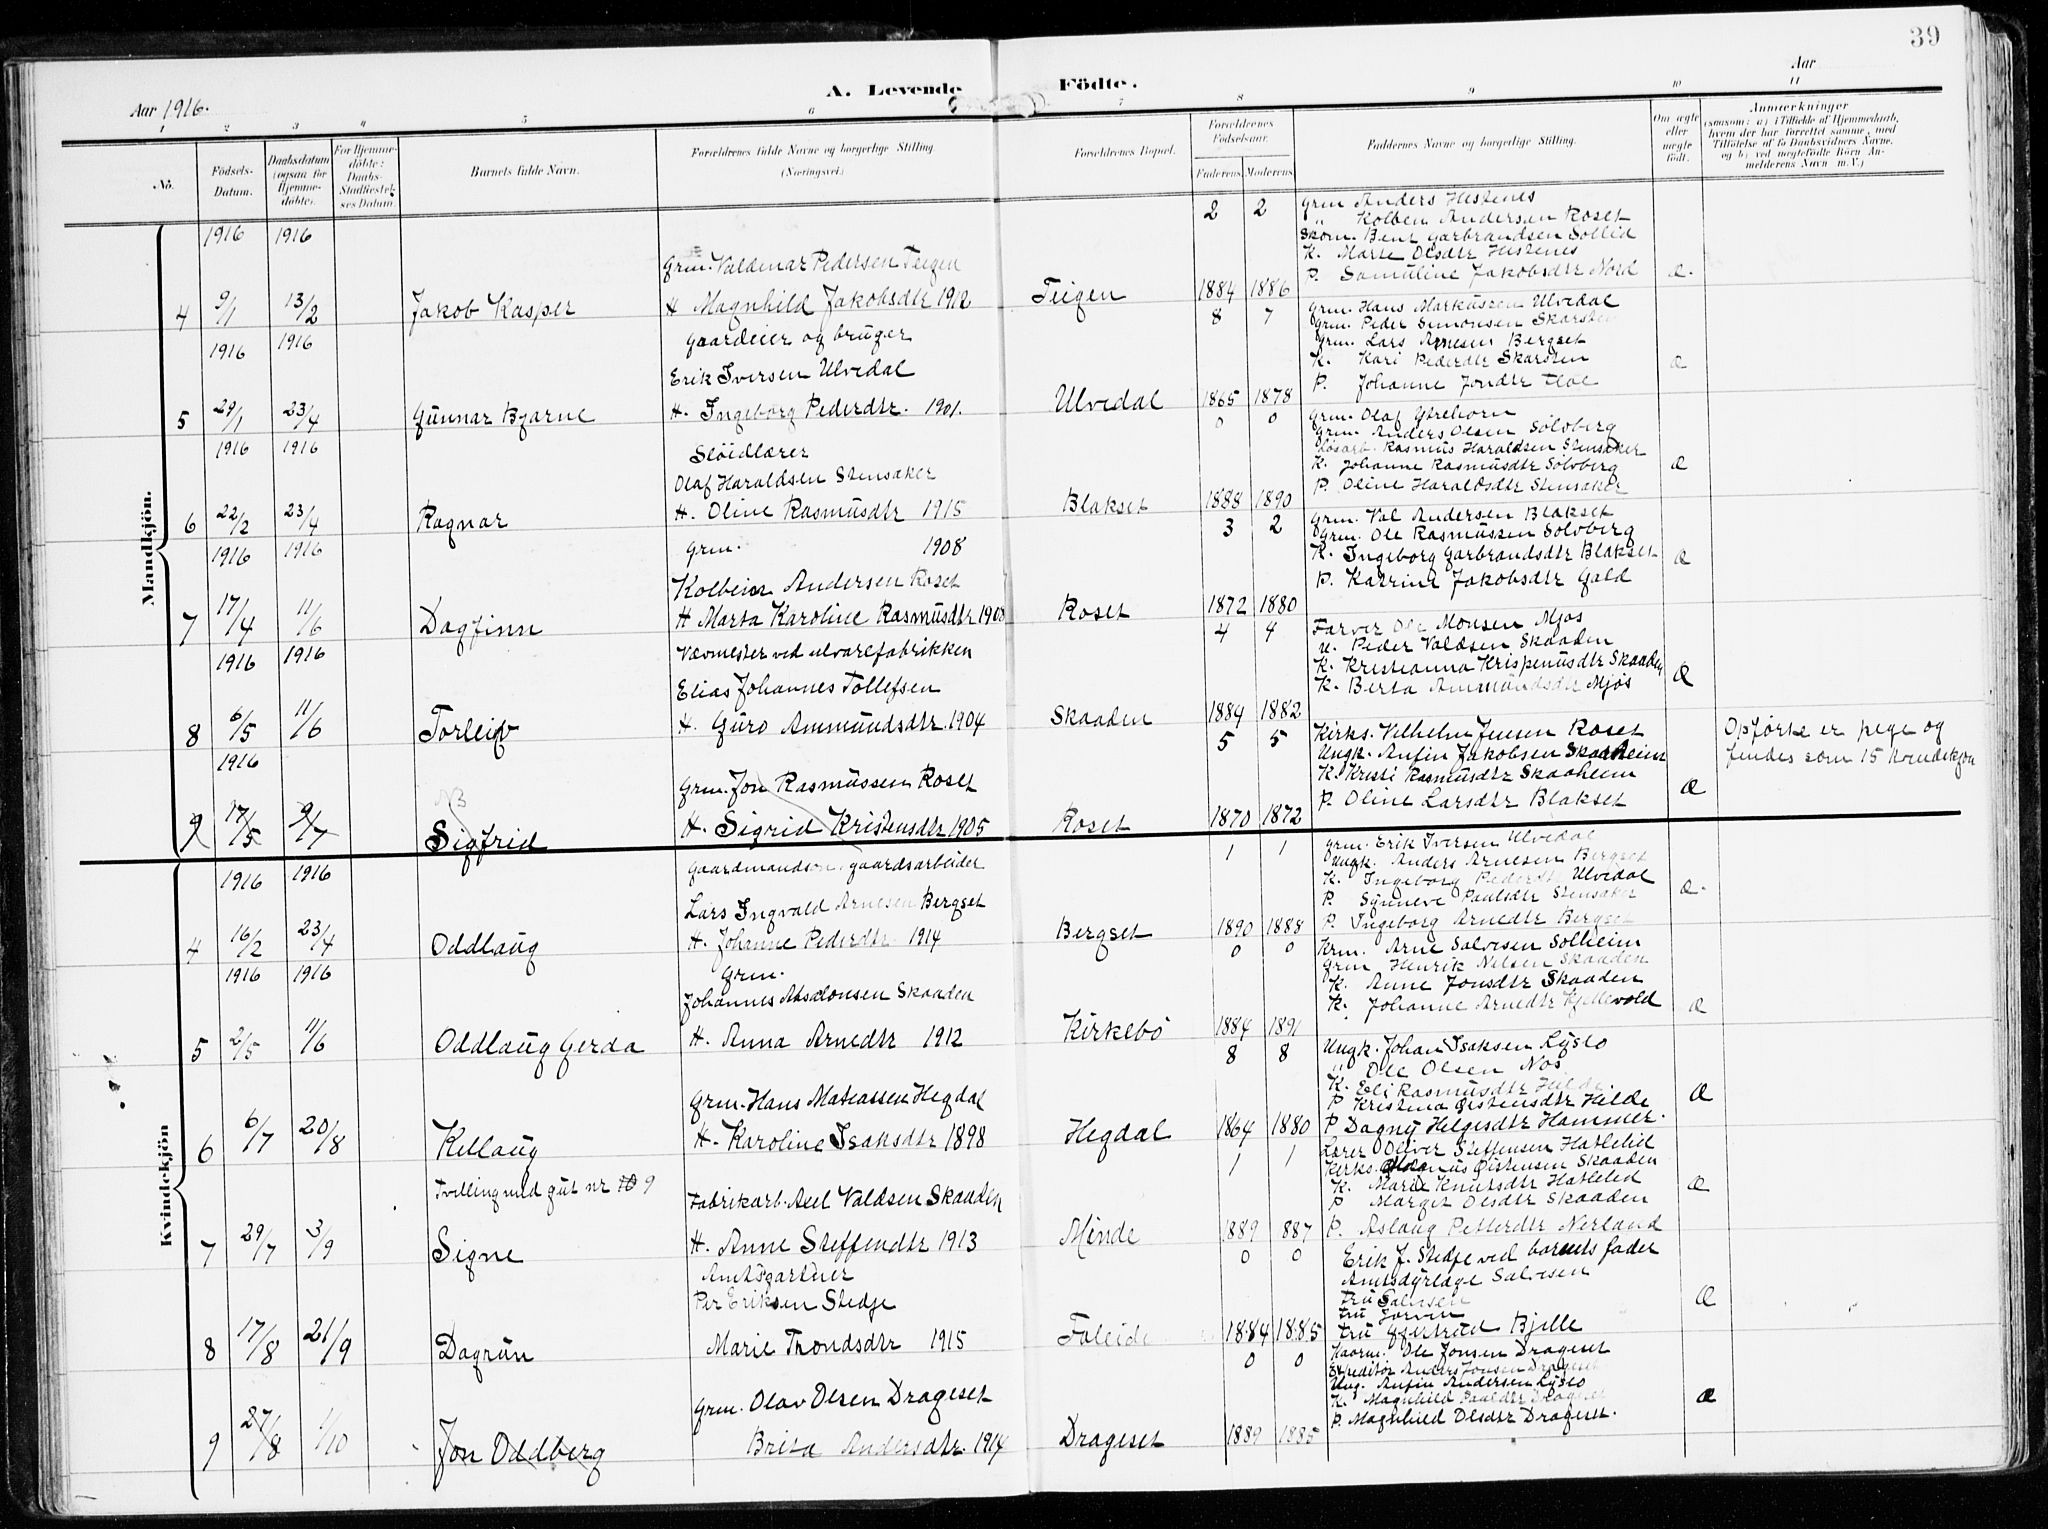 39
Aar 1916.
A. Levende Födte.
Aar
1 2 3 4 5 6 7 8 9 10 11
No.
Födsels-Datum.
Daabsdatum (ogsaa for Hjemme-döbte).
For Hjemme-döbte: Daabs-Stadfæstel-ses Datum.
Barnets fulde Navn.
Forældrenes fulde Navne og borgerlige Stilling. (Næringsvei.)
Forældrenes Bopæl.
Forældrenes Födselsaar.
Faderens Moderens
Faddernes Navne og borgerlige Stilling.
Om ægte eller uægte födt.
Anmærkninger
(saasom: a) i Tilfælde af Hjemmedaab, hvem der har forrettet samme, med Tilföielse af to Daabsvidners Navne, og b) ved uægtefödte Börn Anmelderens Navn m. V.)
Mandkjön.
1916 1916
4 9/1 13/2 Jakob Kasper
Grm. Valdemar Pedersen Teigen
H Magnhild Jakobsdtr 1912
Teigen
2 2
1884 1886
Grm Anders Hestenes
" Kolben Andersen Roset
Skom. Bent Garbrandsen Sollid
K. Marte Olsdtr Hestenes
P. Samuline Jakobsdtr Nord
Æ
1916 1916
5 29/1 23/4 Gunnar Bjarne
Gaardeier og bruger
Erik Iversen Ulvedal
H. Ingeborg Pederdtr. 1901.
Ulvedal
8 7
1865 1878
Grm. Hans Markussen Ulvedal
Grm. Peder Simonsen Skarsten
Grm. Lars Arnesen Bergset
K. Kari Pederdtr Skarsten
P. Johanne Jondtr
Æ
1916 1916
6 22/2 23/4 Ragnar
Slöidlærer
Olaf Haraldsen Stensaker
H. Oline Rasmusdtr 1915
Blakset
0 0
1888 1890
Grm. Olaf Ytrehorn
Grm. Anders Olsen Solvberg
Løsarb. Rasmus Haraldsen Stensaker
K. Johanne Rasmusdtr Solvberg
P. Oline Haraldsdtr Stensaker
Æ
1916 1916
7 17/4 11/6 Dagfinn
Grm. 1908
Kolbein Andersen Roset
H Marta Karoline Rasmusdtr 1908
Roset
3 2
1872 1880
Grm. Val Andersen Blakset
Grm. Ole Rasmussen Solvberg
K. Ingeborg Garbrandsdtr Blakset
P. Katrine Jakobsdtr Gald
Æ
1916 1916
8 6/5 11/6 Torleiv
Vævmester ved ulvarefabrikken
Elias Johannes Tollefsen
H. Guro Ammundsdtr. 1904
Skaaden
4 4
1884 1882
Farver Ole Monsen Mjøs
u. Peder Valdsen Skaaden
K. Kristianna Krispenusdtr Skaaden
K. Berta Ammundsdtr Mjøs
Æ
1916
9 17/5 9/7 Sigfrid
Grm. Jon Rasmussen Roset
H. Sigrid Kristensdtr 1905
Roset
5 5
1870 1872
Kirks. Vilhelm Jensen Roset
Ungk. Anfin Jakobsen Skaaheim
K. Kristi Rasmusdtr Skaaheim
P. Oline Larsdtr Blakset
Æ
Opførte er pige og
findes som 15 kvindekjøn
Kvindekjön
1916 1916
4 16/2 23/4 Oddlaug
Gaardmandsøn, gaardsarbeider
Lars Ingvald Arnesen Bergset
H. Johanne Pederdtr. 1914
Bergset
1 1
1890 1888
Grm. Erik Iversen Ulvedal
Ungk. Anders Arnesen Bergset
K. Ingeborg Pederdtr Ulvedal
P. Synneve Paulsdtr Stensaker
P. Ingeborg Arnedtr Bergset
Æ
1916 1916
5 2/5 11/6 Oddlaug Gerda
Grm.
Johannes Absalonsen Skaaden
H. Anna Arnedtr 1912
Kirkebø
0 0
1884 1891
Krm. Arne Salvesen Solheim
Grm Henrik Nelsen Skaaden
K. Anne Jonsdtr Skaaden
K. Johanne Arnedtr Kjellevold
Æ
6 6/7 20/8 Kellaug
Grm. Hans Matiassen Hegdal
H. Karoline Isaksdtr 1898
Hegdal
8 8
1864 1880
Ungk. Johan Isaksen Lyslo
" Ole Olsen Nos
K. Eli Rasmusdtr Hilde
P Kristina Øistensdtr Hilde
P Dagny Helgesdtr Hammer.
Æ
Tvilling med gut nr 10 9
7 29/7 3/9 Signe
Fabrikarb. Axel Valdsen Skaaden
H. Anne Steffendtr 1913
Minde
1 1
1889 1887
Lærer Oliver Steffensen Hatlelid
Kirks. Magnus Øistensen Skaaden
K. Marie Knutsdtr Hatlelid
P Marget Olsdtr Skaaden
P. Aslaug Petterdtr Nerland
Æ
8 17/8 21/9 Dagrun
Amtsgartner
Per Eriksen Stedje
Marie Trondsdtr 1915
Faleide
0 0
1884 1885
Erik J. Stedje ved barnets fader
Amtsdyrlæge Salvesen
Fru Salvesen
Fru
Fru Gjertrud Bjelle
Æ
9 27/8 1/10 Jon Oddberg
Grm. Olav Olsen Drageset
Brita Andersdtr. 1914
Drageset
0 0
1889 1885
Kaarm. Ole Jonsen Drageset
Expeditør Anders Jonsen Drageset
Ung. Anfin Andersen Lyslo
K. Magnhild Paulsdtr Drageset
P. Magnhild Olsdtr Drageset.
Æ